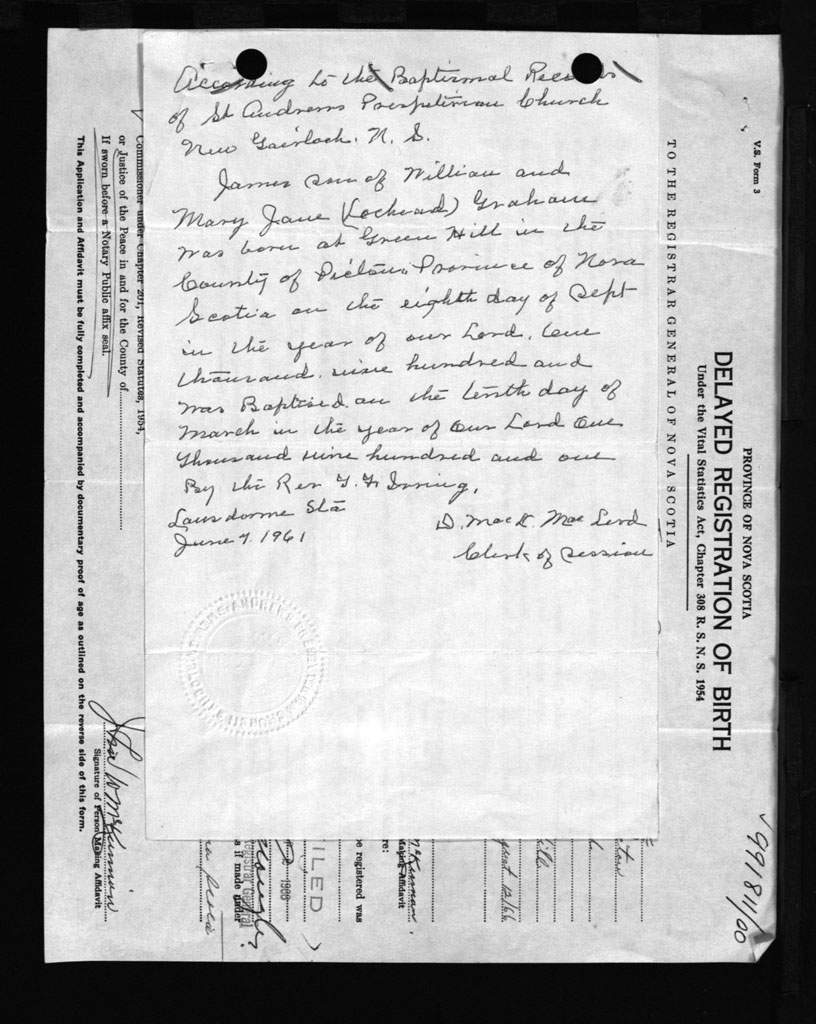 According to the Baptismal Records
of St Andrews Presbyterian Church
New Gairloch. N. S.
James son of William and
Mary Jane (Lockead) Graham
was born at Green Hill in the
County of Pictou, Province of Nova
Scotia on the eighth day of Sept
in the year of our Lord, One
thousand, nine hundred and
was Baptised on the tenth day of
March in the year of Our Lord One
Thousand nine hundred and one
By the Rev
Lansdowne Sta
June 7. 1961
D. MacD. Mac Leod
Clerk of Session
V.S. Form 3
PROVINCE OF NOVA SCOTIA
DELAYED REGISTRATION OF BIRTH
Under the Vital Statistics Act, Chapter 308 R. S. N. S. 1954
TO THE REGISTRAR GENERAL OF NOVA SCOTIA
99181/00
Sept 12/66
McKinnon
Making Affidavit
re:
be registered was
ILED
Registrar General
s if made under
Commissioner under Chapter 201, Revised Statutes, 1954,
or Justice of the Peace in and for the County of
If sworn before a Notary Public affix seal.
McKinnon
Signature of Person Making Affidavit
This Application and Affidavit must be fully completed and accompanied by documentary proof of age as outlined on the reverse side of this form.